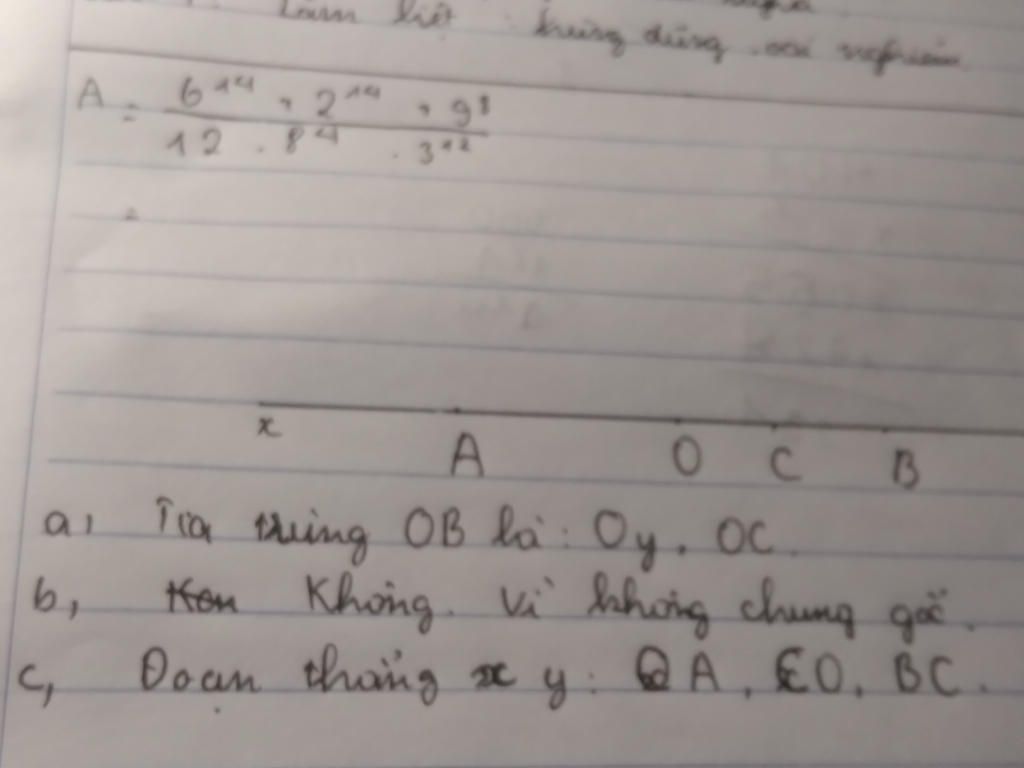 Làm
A = 6¹⁴ . 2¹⁴ . 9⁸
12 . 8⁴ . 3¹²
=
x
A O C B
a, Tia trùng OB là: Oy, OC.
b, Không. Vì không chung gốc.
c, Đoạn thẳng x y: OA, CO, BC.